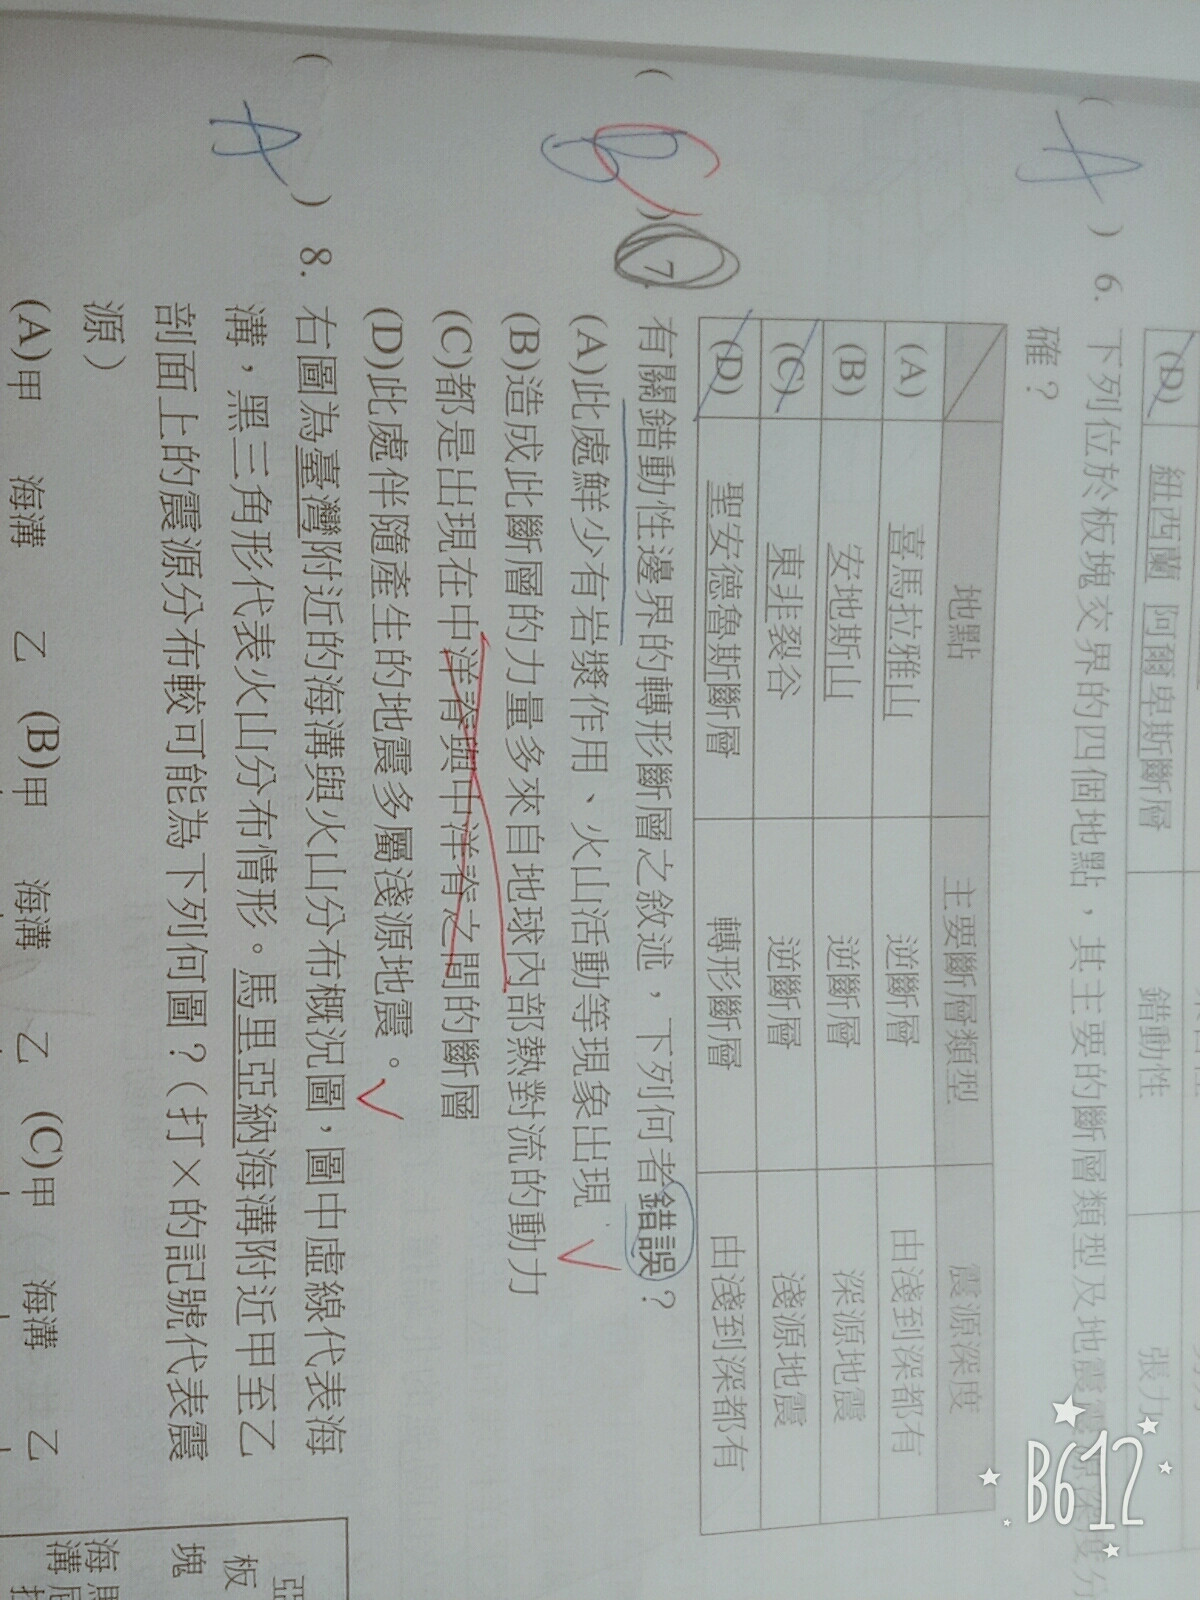 (D) 紐西蘭 阿爾卑斯斷層 錯動性 張力
( A ) 6. 下列位於板塊交界的四個地點，其主要的斷層類型及地震震源深度分
確？
地點 主要斷層類型 震源深度
(A) 喜馬拉雅山 逆斷層 由淺到深都有
(B) 安地斯山 逆斷層 深源地震
(C) 東非裂谷 逆斷層 淺源地震
(D) 聖安德魯斯斷層 轉形斷層 由淺到深都有
( B C ) 7. 有關錯動性邊界的轉形斷層之敘述，下列何者錯誤？
(A)此處鮮少有岩漿作用、火山活動等現象出現
(B)造成此斷層的力量多來自地球內部熱對流的動力
(C)都是出現在中洋脊與中洋脊之間的斷層
(D)此處伴隨產生的地震多屬淺源地震。
( A ) 8. 右圖為臺灣附近的海溝與火山分布概況圖，圖中虛線代表海
溝，黑三角形代表火山分布情形。馬里亞納海溝附近甲至乙
剖面上的震源分布較可能為下列何圖？（打×的記號代表震
源）
(A)甲 海溝 乙 (B)甲 海溝 乙 (C)甲 海溝 乙
板
塊
海
溝
B612